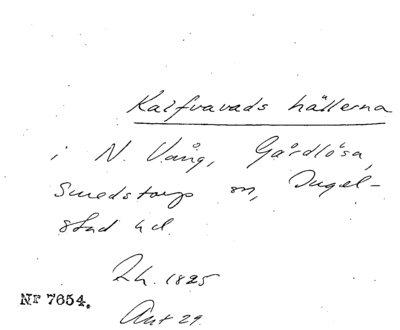 Kalfvavads hällerna
i N. Vång, Gårdlösa,
Smedstorp sn, Ingel-
stad hd.
Lh. 1825
Nr 7654.
Ant 29.